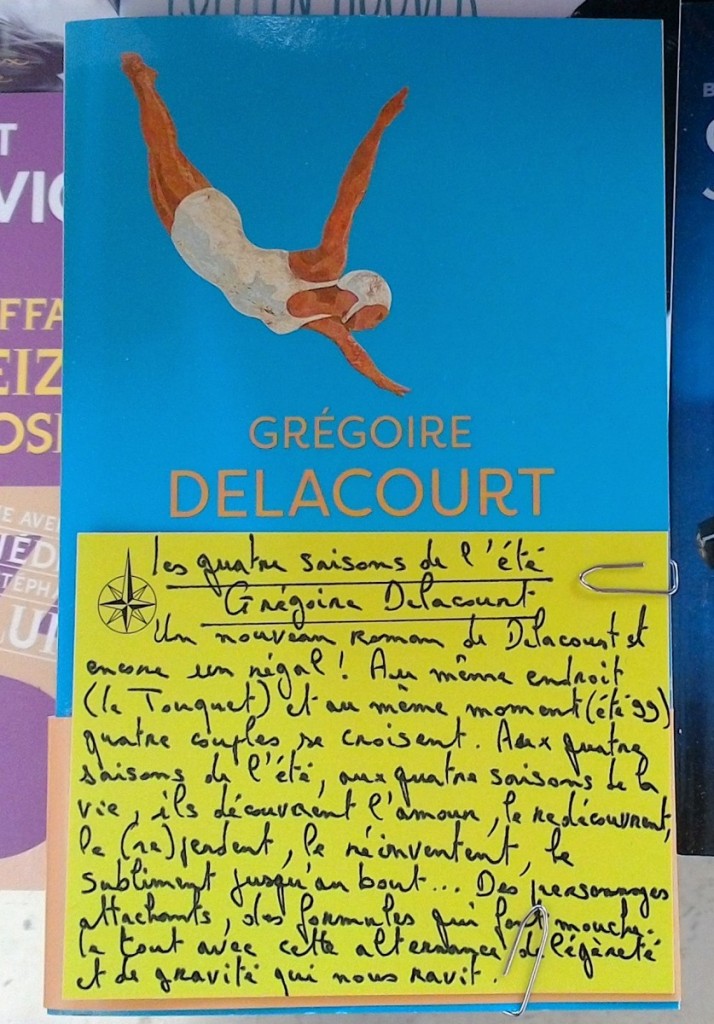 GRÉGOIRE
DELACOURT
les quatre saisons de l'été
Grégoire Delacourt
Un nouveau roman de Delacourt et
encore un régal! Au même endroit
(le Touquet) et au même moment (été 99)
quatre couples se croisent. Aux quatre
saisons de l'été, aux quatre saisons de la
vie, ils découvrent l'amour, le redécouvrent,
le (re)perdent, le réinventent, le
subliment jusqu'au bout... Des personnages
attachants, des formules qui font mouche.
le tout avec cette alternance de légèreté
et de gravité qui nous ravit.
T
VIC
FFA
EIZ
OSE
E AVE
LU
B
S